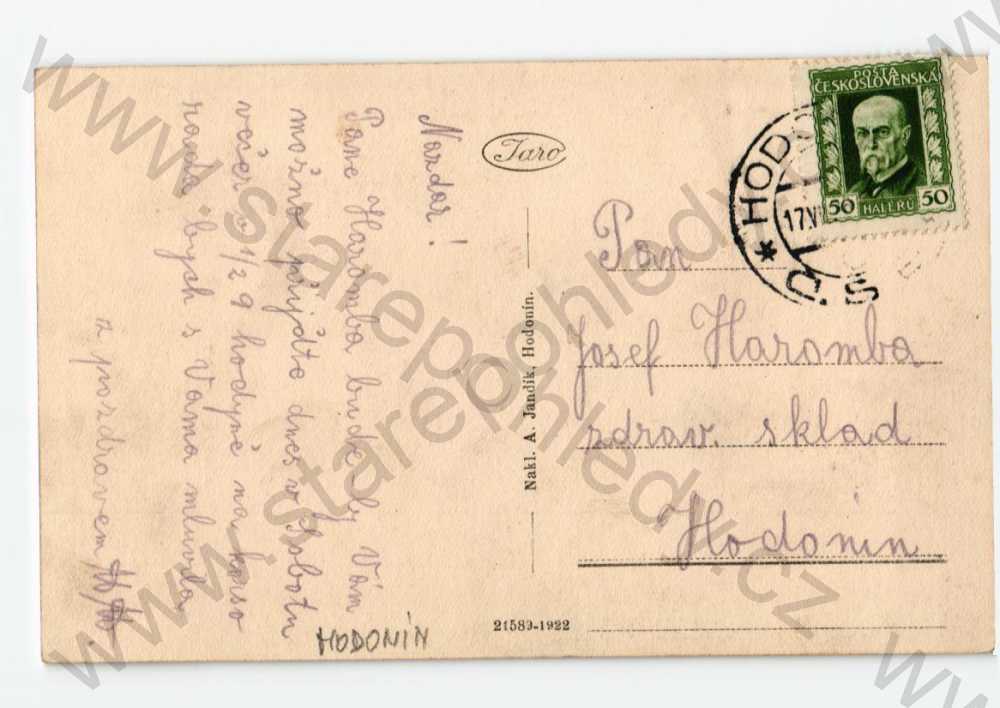 Nazdar!
Pane Haromba bude-li Vám
možno přijďte dnes v Sobotu
večer o 1/2 9 hodyně na korso
rada bych s Vama mluvila
z pozdravem
HODONÍN
Taro
Nakl. A. Jandík, Hodonín.
21589-1922
POŠTA
ČESKOSLOVENSKÁ
50 HALÉŘŮ 50
* HODO
17.VI
Č.S
Pan
Josef Haromba
zdrav. sklad
Hodonín
www.starepohledy.cz
www.starepohledy.cz